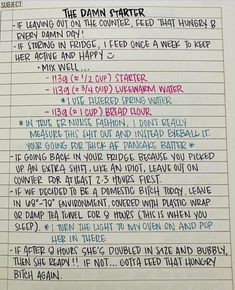 SUBJECT:
THE DAMN STARTER
- IF LEAVING OUT ON THE COUNTER, FEED THAT HUNGRY B
EVERY DAMN DAY!
- IF STORING IN FRIDGE, I FEED ONCE A WEEK TO KEEP
HER ACTIVE AND HAPPY
• MIX WELL...
- 113g (≈ 1/2 CUP) STARTER
- 113g (≈ 3/4 CUP) LUKEWARM WATER
*I USE FILTERED SPRING WATER
- 113g (≈ 1 CUP) BREAD FLOUR
* IN TRUE ER NURSE FASHION, I DON'T REALLY
MEASURE THIS SHIT OUT AND INSTEAD EYEBALL IT.
YOUR GOING FOR THICK AF PANCAKE BATTER *
- IF GOING BACK IN YOUR FRIDGE BECAUSE YOU PICKED
UP AN EXTRA SHIFT, LIKE AN IDIOT, LEAVE OUT ON
COUNTER FOR ATLEAST 2-3 HOURS FIRST.
- IF WE DECIDED TO BE A DOMESTIC BITCH TODAY, LEAVE
IN 68°-78° ENVIRONMENT, COVERED WITH PLASTIC WRAP
OR DAMP TEA TOWEL FOR 8 HOURS (THIS IS WHEN YOU
SLEEP). * I TURN THE LIGHT TO MY OVEN ON AND POP
HER IN THERE
- IF AFTER 8 HOURS SHE'S DOUBLED IN SIZE AND BUBBLY,
THEN SHE READY!! IF NOT... GOTTA FEED THAT HUNGRY
BITCH AGAIN.